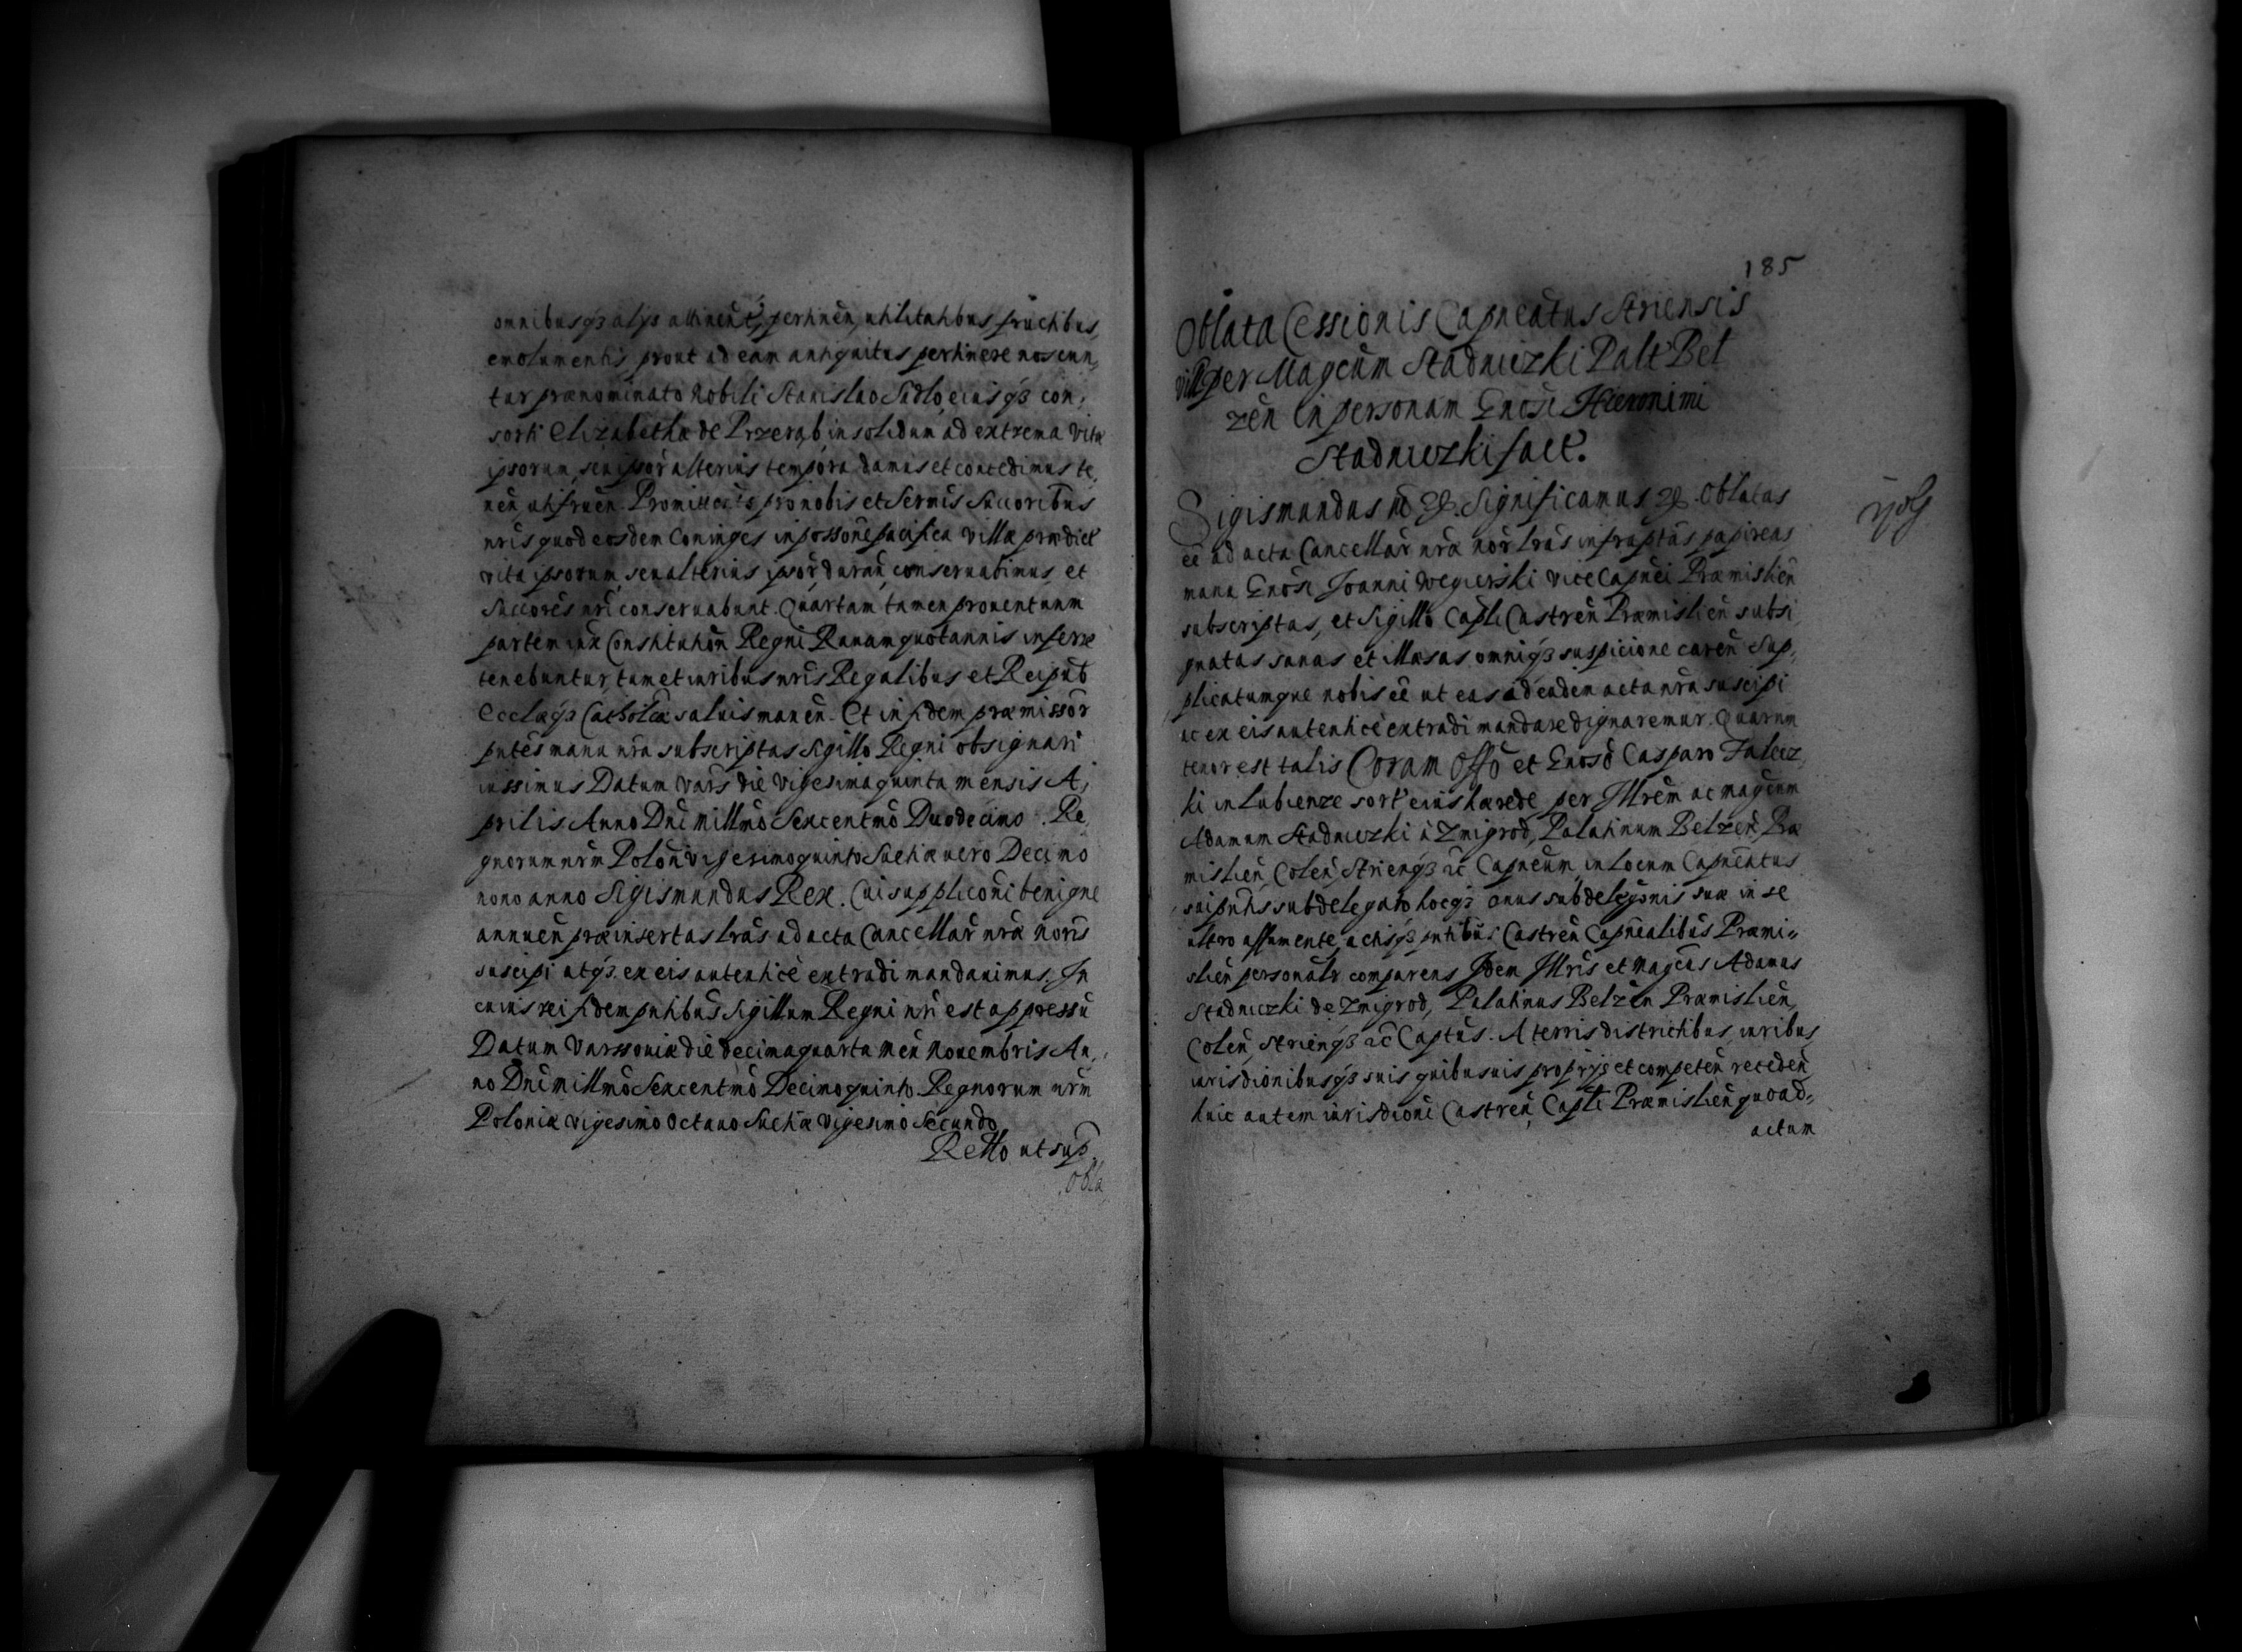 omnibusqȝ alys attinen̄t, pertinen̄, utilitatibus fructibus,
emolumentis prout ad eam antiquitus pertinere noscun,
tur prænominato Nobili Stanislao Sidło, eiusqȝ con,
sorti Elizabethæ de Przerąb in solidum ad extrema vitæ
ipsorum, seu ipsor̄ alterius tempora damus et concedimus te,
nen̄ utifruen̄. Promitten̄te pro nobis et Serm̄is Succoribūs
nr̄is quod eosdem Coniuges in possōne pacifica villæ prædict̄
vita ipsorum, seu alterius ipsor̄ duran̄ conseruabimus, et
Succorēs nr̄i conseruabunt. Quartam tamen prouentuum
partem iux̄ Constitution̄ Regni Rauam quotannis inferre
tenebuntur, tum et iuribus nr̄is Regalibus et Reipub̄
Ecclæqȝ Catholicæ saluis manen̄. Et in fidem præmissor̄
pn̄tēs manu nr̄a subscriptas Sigillo Regni obsignari
iussimus Datum Vars̄ die vigesima quinta mensis A,
prilis Anno Dn̄i Millm̄o Sexcentm̄o Duodecimo. Re,
gnorum nr̄m Polon̄ vigesimoquinto Suetiæ uero Decimo
nono anno Sigismundus Rex. Cui supplicōni benigne
annuen̄ præinsertas lrās ad acta Cancellar̄ nr̄æ Noris̄
suscipi atqȝ ex eis autenticè extradi mandauimus. In
cuius rei fidem pn̄tibūs Sigillum Regni nr̄i est appressū
Datum Varssouiæ die decimaquarta Men̄ Nouembris An,
no Dn̄i Millm̄o Sexcentm̄o Decimoquinto. Regnorum nr̄m
Poloniæ vigesimo octauo Suetiæ vigesimo Secundo,
Retto ut sup̄
Obla
185
Oblata Cessionis Capn̄eatus Striensis
per Magcūm Stadniczki Palt̄ Bel
zen̄ In personam Gn̄osi Hieronimi
Stadniczki fact.
Sigismundus III etc. Significamus etc. Oblatas
eē ad acta Cancellar̄ nr̄æ nor̄ lrās infraptās papireas
manu Gn̄osi Joanni Wegierski vice Capn̄ei Præmislien̄
subscriptas, et Sigillo Capli Castren̄ Præmislien̄ subsi,
gnatas sanas et illæsas omniqȝ suspicione caren̄ Sup,
plicatumque nobis eē ut eas ad eadem acta nr̄a suscipi
ac ex eis autenticè extradi mandare dignaremur. Quarum
tenor est talis Coram Offō et Gn̄osō Casparo Falęcz,
ki in Lubienze sort̄ eius hærede per Illrēm ac magcum
Adamum Stadniczki à Zmigrod, Palatinum Belzen̄, Præ
mislien̄, Colen̄, Strienqȝ ac̄ Capn̄eum, in locum Capn̄eatus
sui pn̄tis subdelegato hocqȝ onus subdelegōnis suæ in se
ultro assumente, actisqȝ pn̄tibūs Castren̄ Capn̄ealibus Præmi,,
slien̄ personalr̄ comparens Idem Illrīs et Magcūs Adamus
Stadniczki de Zmigrod, Palatinus Belzen̄ Præmislien̄,
Colen̄, Strienqȝ ac̄ Captūs. A terris districtibus, iuribus,
iurisdiōnibusqȝ suis quibusuis proprys et competen̄ receden̄
huic autem iurisdiōni Castren̄, Capli Præmislien̄ quoad,,
actum